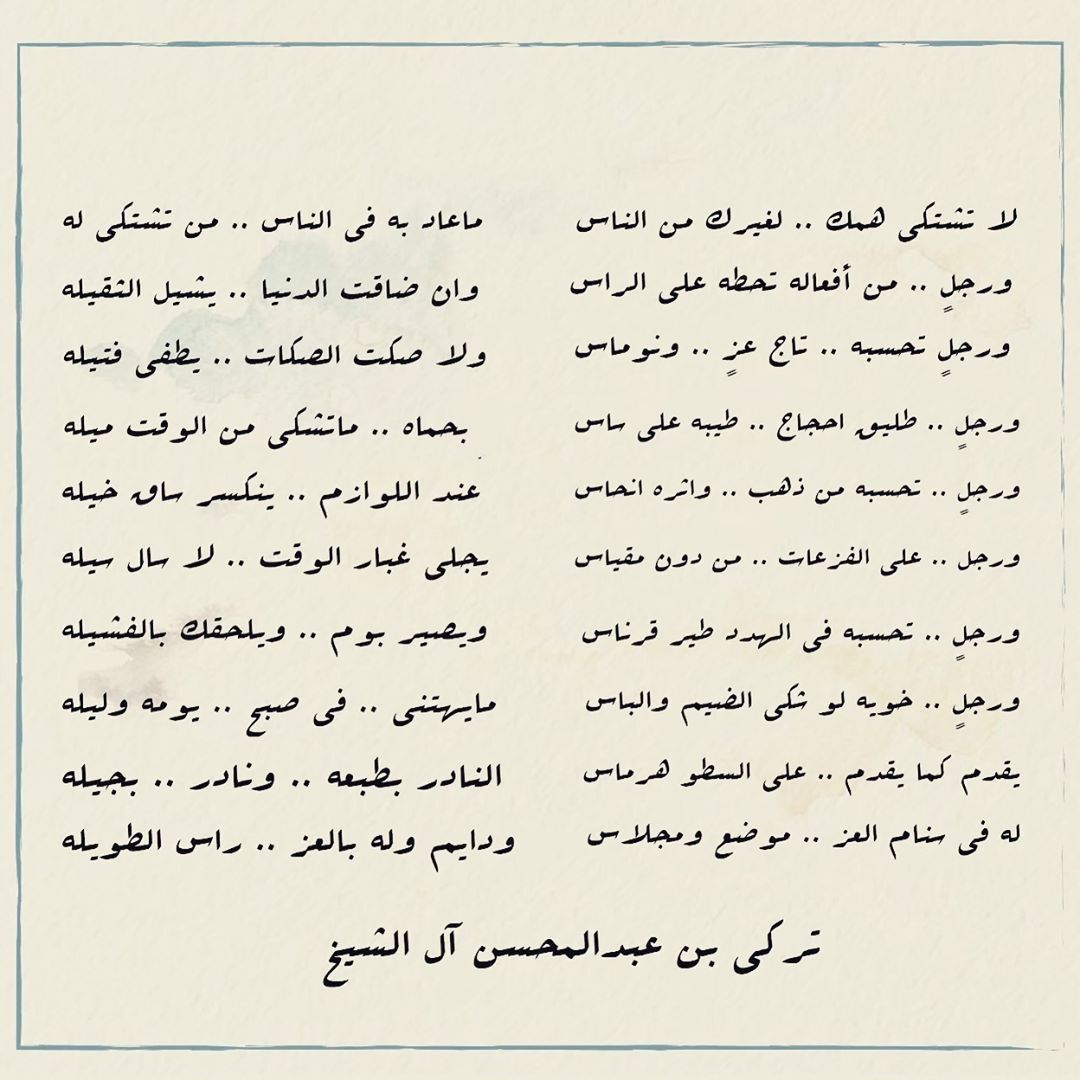 لا تشتكي همك .. لغيرك من الناس ماعاد به في الناس .. من تشتكي له
ورجلٍ .. من أفعاله تحطه على الراس وان ضاقت الدنيا .. يشيل الثقيله
ورجلٍ تحسبه .. تاج عزٍ .. ونوماس ولا صكت الصكات .. يطفي فتيله
ورجلٍ .. طليق احجاج .. طيبه على ساس بحماه .. ماتشكي من الوقت ميله
ورجلٍ .. تحسبه من ذهب .. واثره انحاس عند اللوازم .. ينكسر ساق خيله
ورجل .. على الفزعات .. من دون مقياس يجلي غبار الوقت .. لا سال سيله
ورجلٍ .. تحسبه في الهدد طير قرناس ويصير بوم .. ويلحقك بالفشيله
ورجلٍ .. خويه لو شكى الضيم والباس مايهتني .. في صبح .. يومه وليله
يقدم كما يقدم .. على السطو هرماس النادر بطبعه .. ونادر .. بجيله
له في سنام العز .. موضع ومجلاس ودايم وله بالعز .. راس الطويله
تركي بن عبدالمحسن آل الشيخ